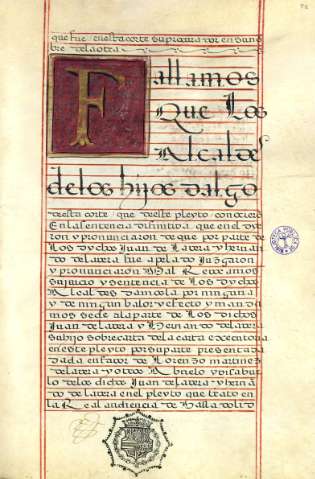 que fue en esta corte suplicada por en su nom
bre de la otra
Fallamos
Que Los
Alcaldes
de los hijos dalgo
desta corte que deste pleyto conocierõ
En la sentencia difinitiva que en el die
ron y pronunciaron de que por parte de
Los dichos Juan de Lavera y hernan
do de lavera fue apelado Juzgaron
y pronunciaron Mal Revocamos
su juicio y sentencia de Los dichos
Alcaldes damosla por ninguna
y de ningun balor y efecto y man da
mos se de a la parte de Los dichos
Juan de lavera y Hernando de lavera
su hijo sobrecarta de la carta executoria
en este pleyto por su parte presentada
dada en favor de Lorenzo martinez
de lavera y otros Abuelo y visabue
lo de los dichos Juan de lavera y herna
do de lavera en el pleyto que trato en
la Real audiencia de Valladolid